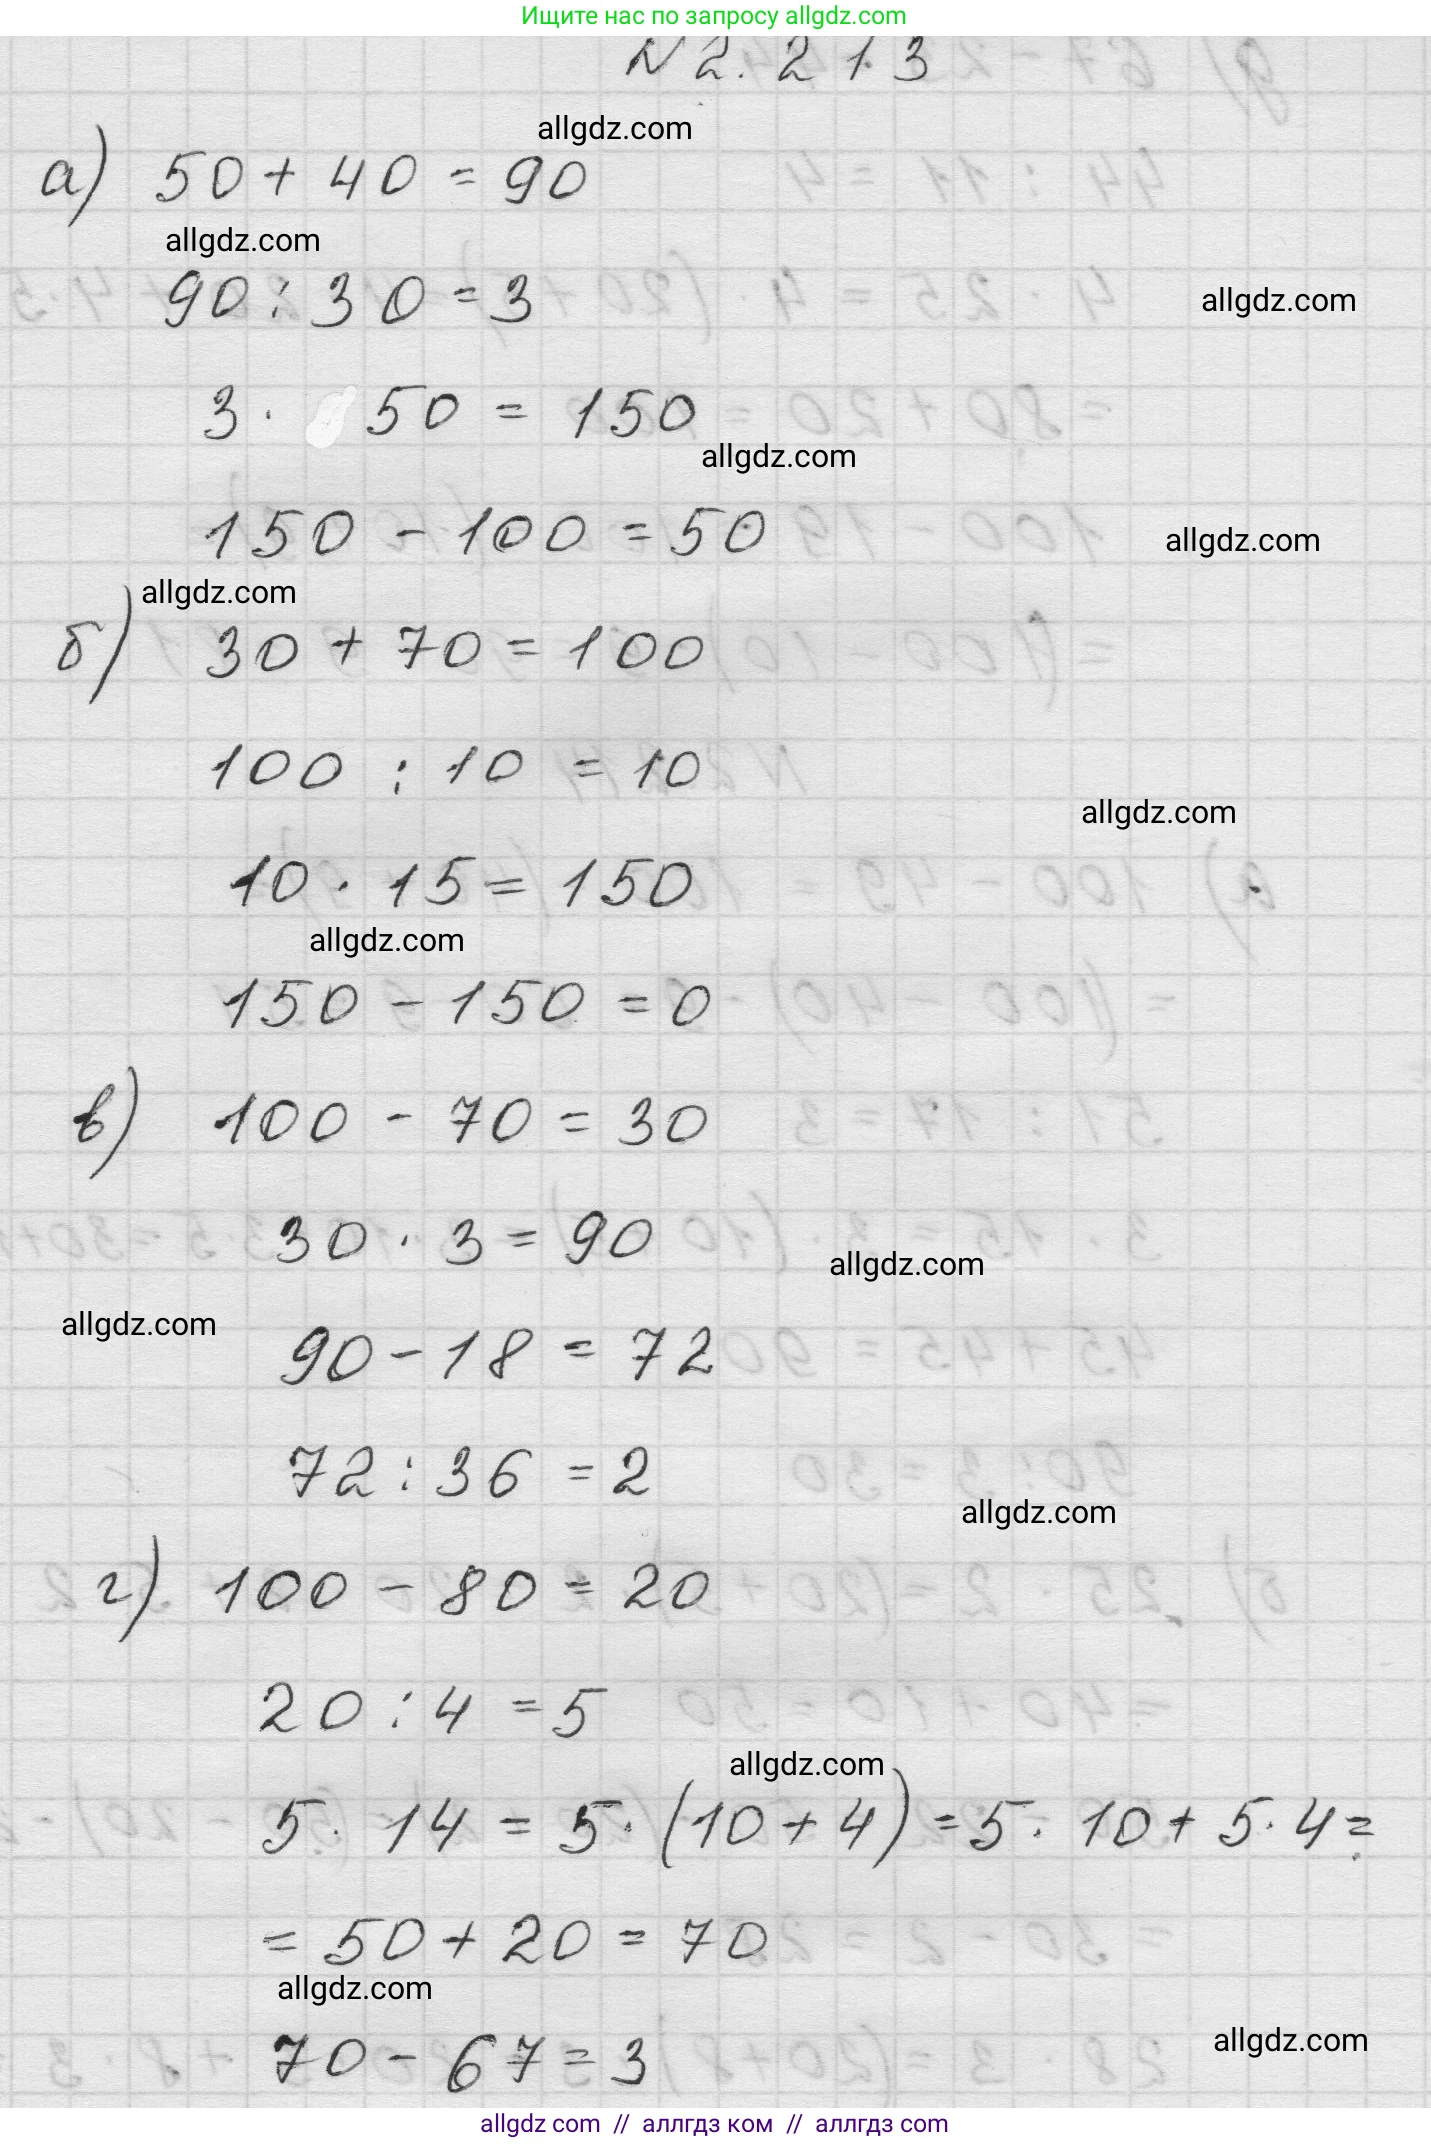 Ищите нас по запросу allgdz.com
N 2.213
allgdz.com
а) 50 + 40 = 90
allgdz.com
90 : 30 = 3
allgdz.com
3 · 50 = 150
allgdz.com
150 - 100 = 50
allgdz.com
allgdz.com
б) 30 + 70 = 100
100 : 10 = 10
allgdz.com
10 · 15 = 150
allgdz.com
150 - 150 = 0
в) 100 - 70 = 30
30 · 3 = 90
allgdz.com
allgdz.com
90 - 18 = 72
72 : 36 = 2
allgdz.com
г) 100 - 80 = 20
20 : 4 = 5
allgdz.com
5 · 14 = 5 · (10 + 4) = 5 · 10 + 5 · 4 =
= 50 + 20 = 70
allgdz.com
allgdz.com
70 - 67 = 3
allgdz com // аллгдз ком // аллгдз com